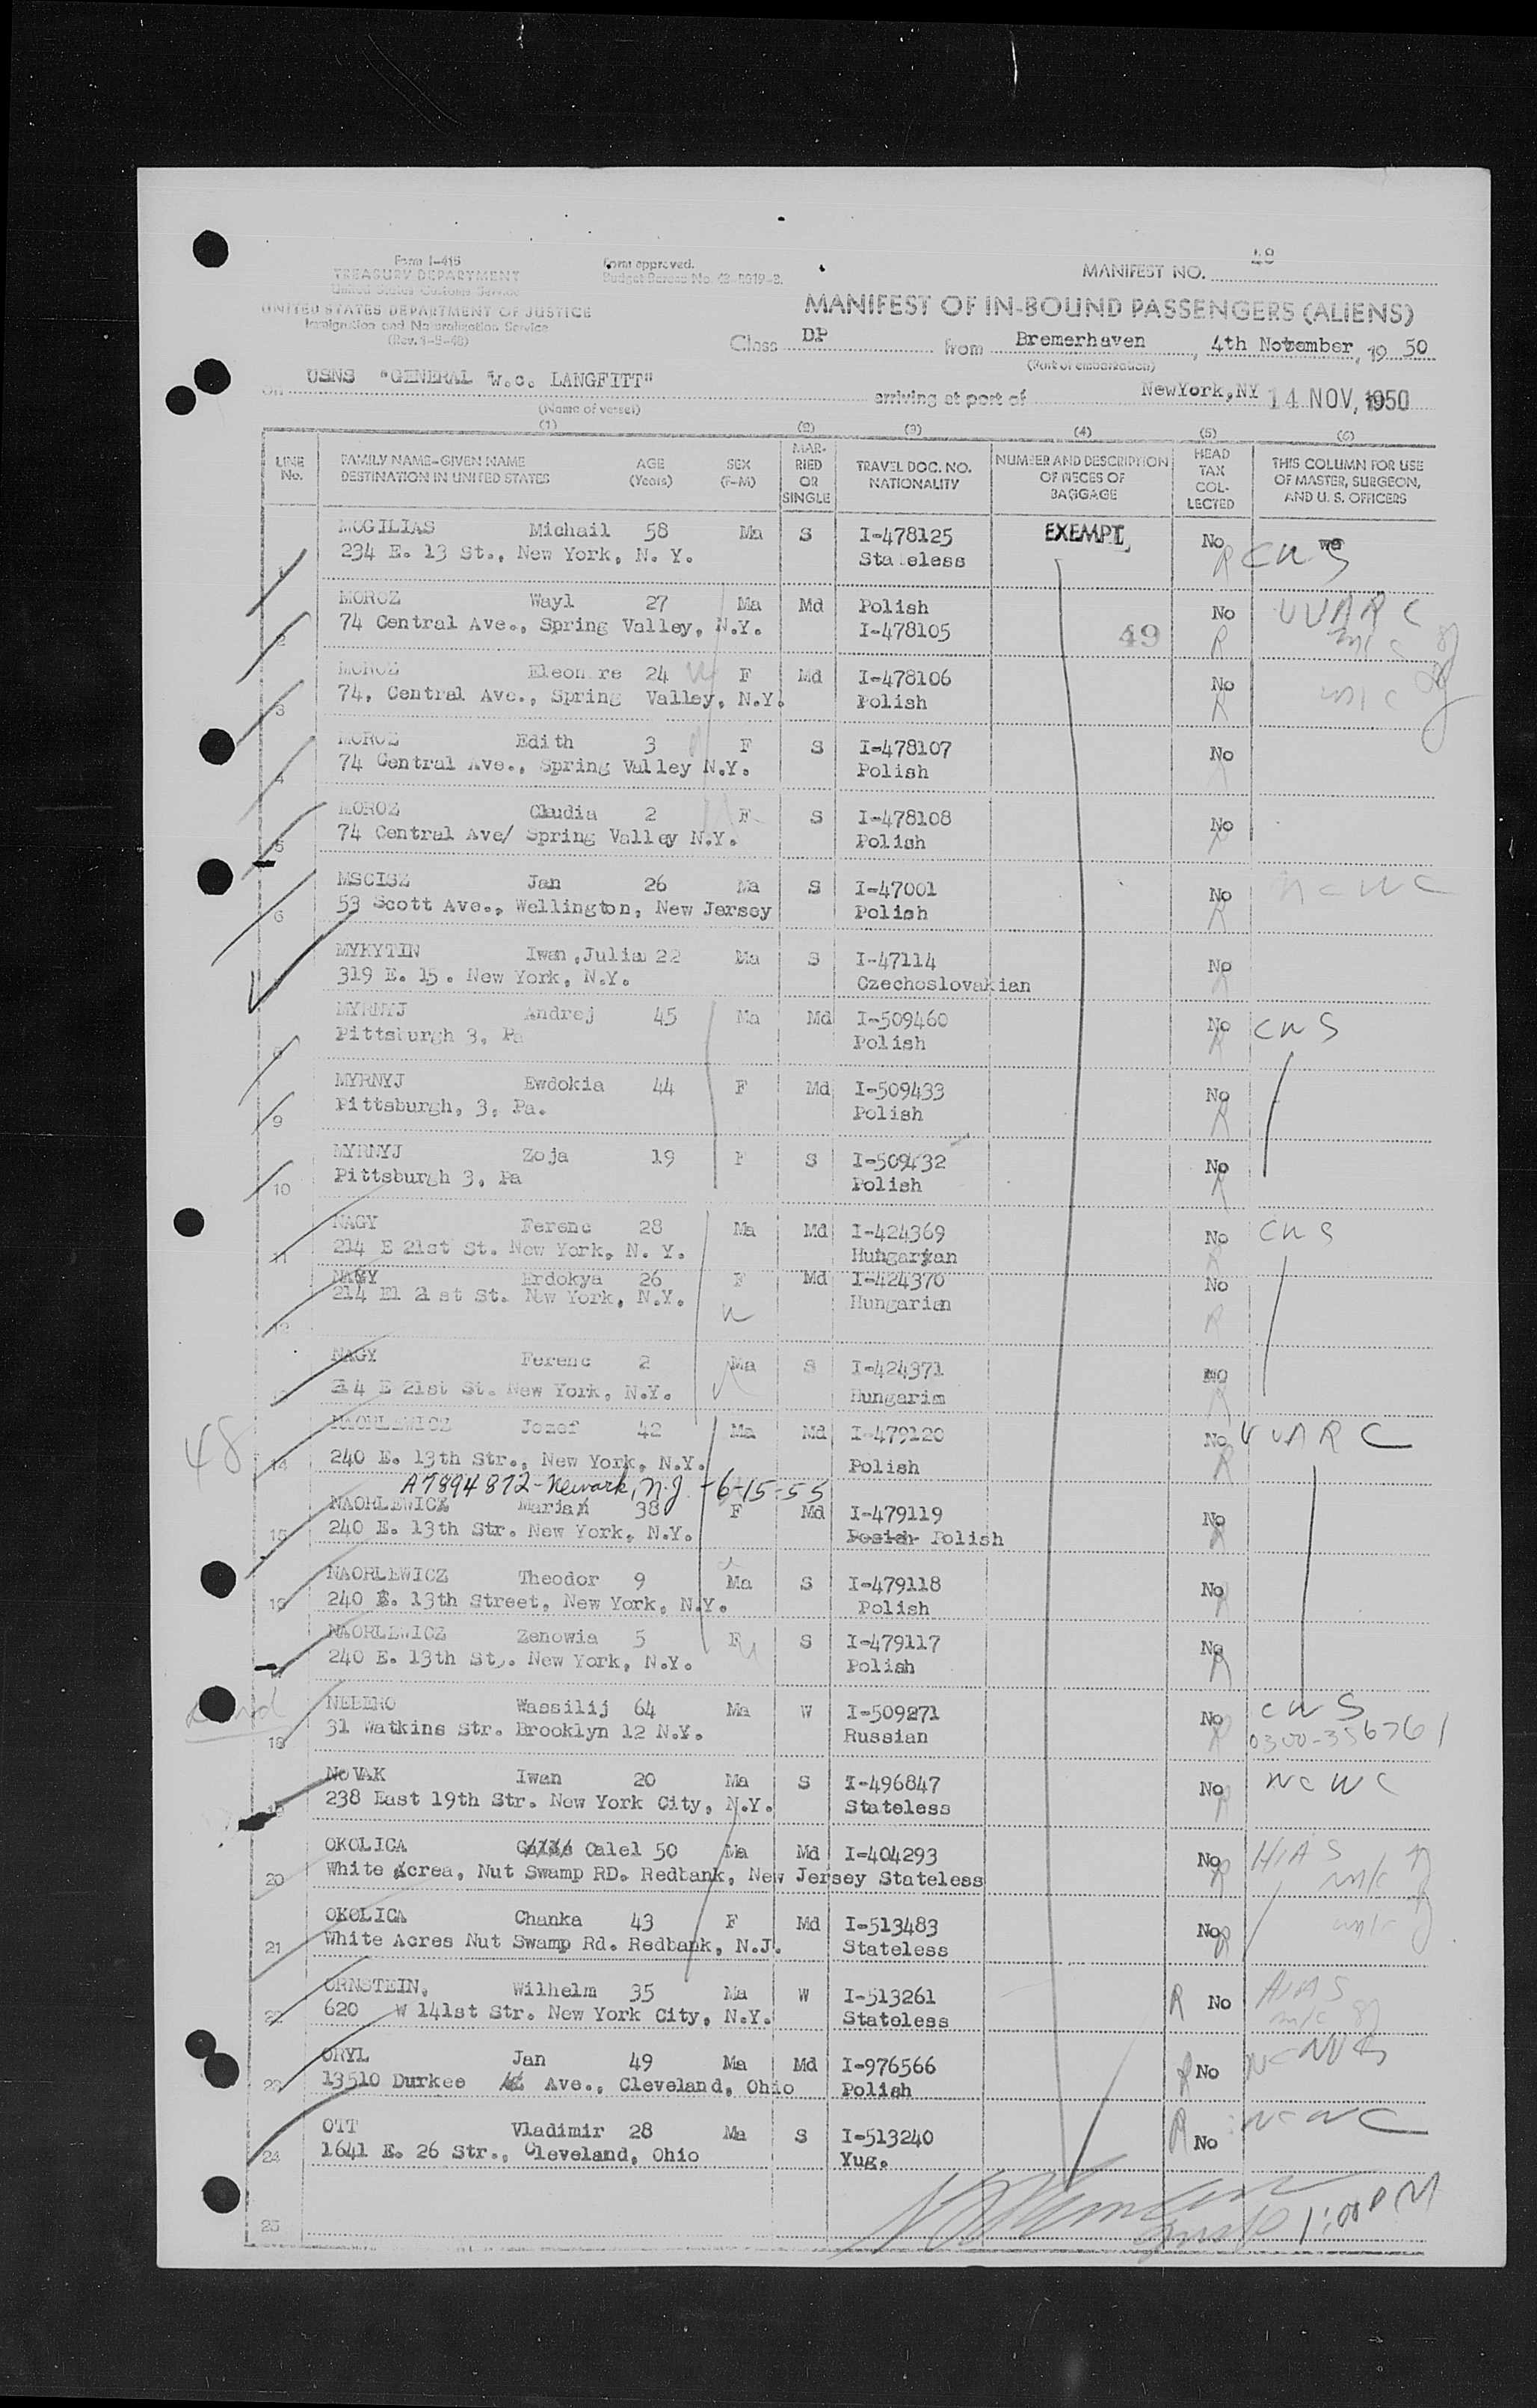 Form I-416
TREASURY DEPARTMENT
United States Customs Service
UNITED STATES DEPARTMENT OF JUSTICE
Immigration and Naturalization Service
Form approved.
MANIFEST NO.
MANIFEST OF IN-BOUND PASSENGERS (ALIENS)
Class DP from Bremerhaven, 4th November, 19 50
(Port of embarkation)
on USNS "GENERAL W.C. LANGFITT" arriving at port of NewYork,NY 14 NOV, 1950
(Name of vessel)
(1) (2) (3) (4) (5) (6)
LINE No. FAMILY NAME-GIVEN NAME DESTINATION IN UNITED STATES AGE (Years) SEX (F-M) MARRIED OR SINGLE TRAVEL DOC. NO. NATIONALITY NUMBER AND DESCRIPTION OF PIECES OF BAGGAGE HEAD TAX COLLECTED THIS COLUMN FOR USE OF MASTER, SURGEON, AND U. S. OFFICERS
MOGILIAS Michail 58 Ma S I-478125 EXEMPT, No CWS
234 E. 13 St., New York, N. Y. Stateless
MOROZ Wayl 27 Ma Md Polish No UUARC
2 74 Central Ave., Spring Valley, N.Y. I-478105 49
MOROZ F Md I-478106 No
3 74, Central Ave., Spring Valley, N.Y. Polish
MOROZ Edith 3 F S I-478107 No
4 74 Central Ave., Spring Valley N.Y. Polish
MOROZ Claudia 2 F S I-478108 No
5 74 Central Ave/ Spring Valley N.Y. Polish
MSCISZ Jan 26 Ma S I-47001 No NCWC
6 53 Scott Ave., Wellington, New Jersey Polish
MYKYTIN Iwan,Julian 22 Ma S I-47114 No
319 E. 15. New York, N.Y. Czechoslovakian
MYRNYJ Andrej 45 Ma Md I-509460 No CWS
8 Pittsburgh 3, Pa Polish
MYRNYJ Ewdokia 44 F Md I-509433 No
9 Pittsburgh, 3, Pa. Polish
MYRNYJ Zoja 19 F S I-509432 No
10 Pittsburgh 3, Pa Polish
NAGY Ferenc 28 Ma Md I-424369 No CWS
11 214 E 21st St. New York, N. Y. Hungarian
NAGY Erdokya 26 F Md I-424370 No
214 E1 21 st St. New York, N.Y. Hungarian
NAGY Ferenc 2 Ma S I-424371 NO
214 E 21st St. New York, N.Y. Hungarian
48
NAORLEWICZ Jozef 42 Ma Md I-479120 No UUARC
14 240 E. 13th Str., New York, N.Y. Polish
A7894872-Newark, N.J. -6-15-55
NAORLEWICZ Marian 38 F Md I-479119 No
15 240 E. 13th Str. New York, N.Y. Polish
NAORLEWICZ Theodor 9 Ma S I-479118 No
16 240 E. 13th Street, New York, N.Y. Polish
NAORLEWICZ Zenowia 5 F S I-479117 No
240 E. 13th St. New York, N.Y. Polish
NEBERO Wassilij 64 Ma W I-509271 No CWS
18 31 Watkins Str. Brooklyn 12 N.Y. Russian 0300-356761
NOVAK Iwan 20 Ma S I-496847 No NCWC
19 238 East 19th Str. New York City, N.Y. Stateless
OKOLICA Calel 50 Ma Md I-404293 No HIAS
20 White Acrea, Nut Swamp RD. Redbank, New Jersey Stateless
OKOLICA Chanka 43 F Md I-513483 No
21 White Acres Nut Swamp Rd. Redbank, N.J. Stateless
ORNSTEIN, Wilhelm 35 Ma W I-513261 R No HIAS
22 620 W 141st Str. New York City, N.Y. Stateless
ORYL Jan 49 Ma Md I-976566 R No
23 13510 Durkee Ave., Cleveland, Ohio Polish
OTT Vladimir 28 Ma S I-513240 R No NCWC
24 1641 E. 26 Str., Cleveland, Ohio Yug.
25 1:00 PM